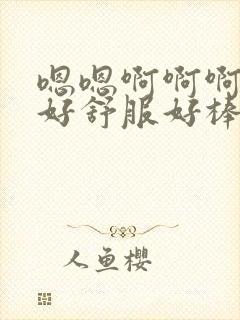 嗯嗯啊啊啊
好舒服好棒
人鱼樱